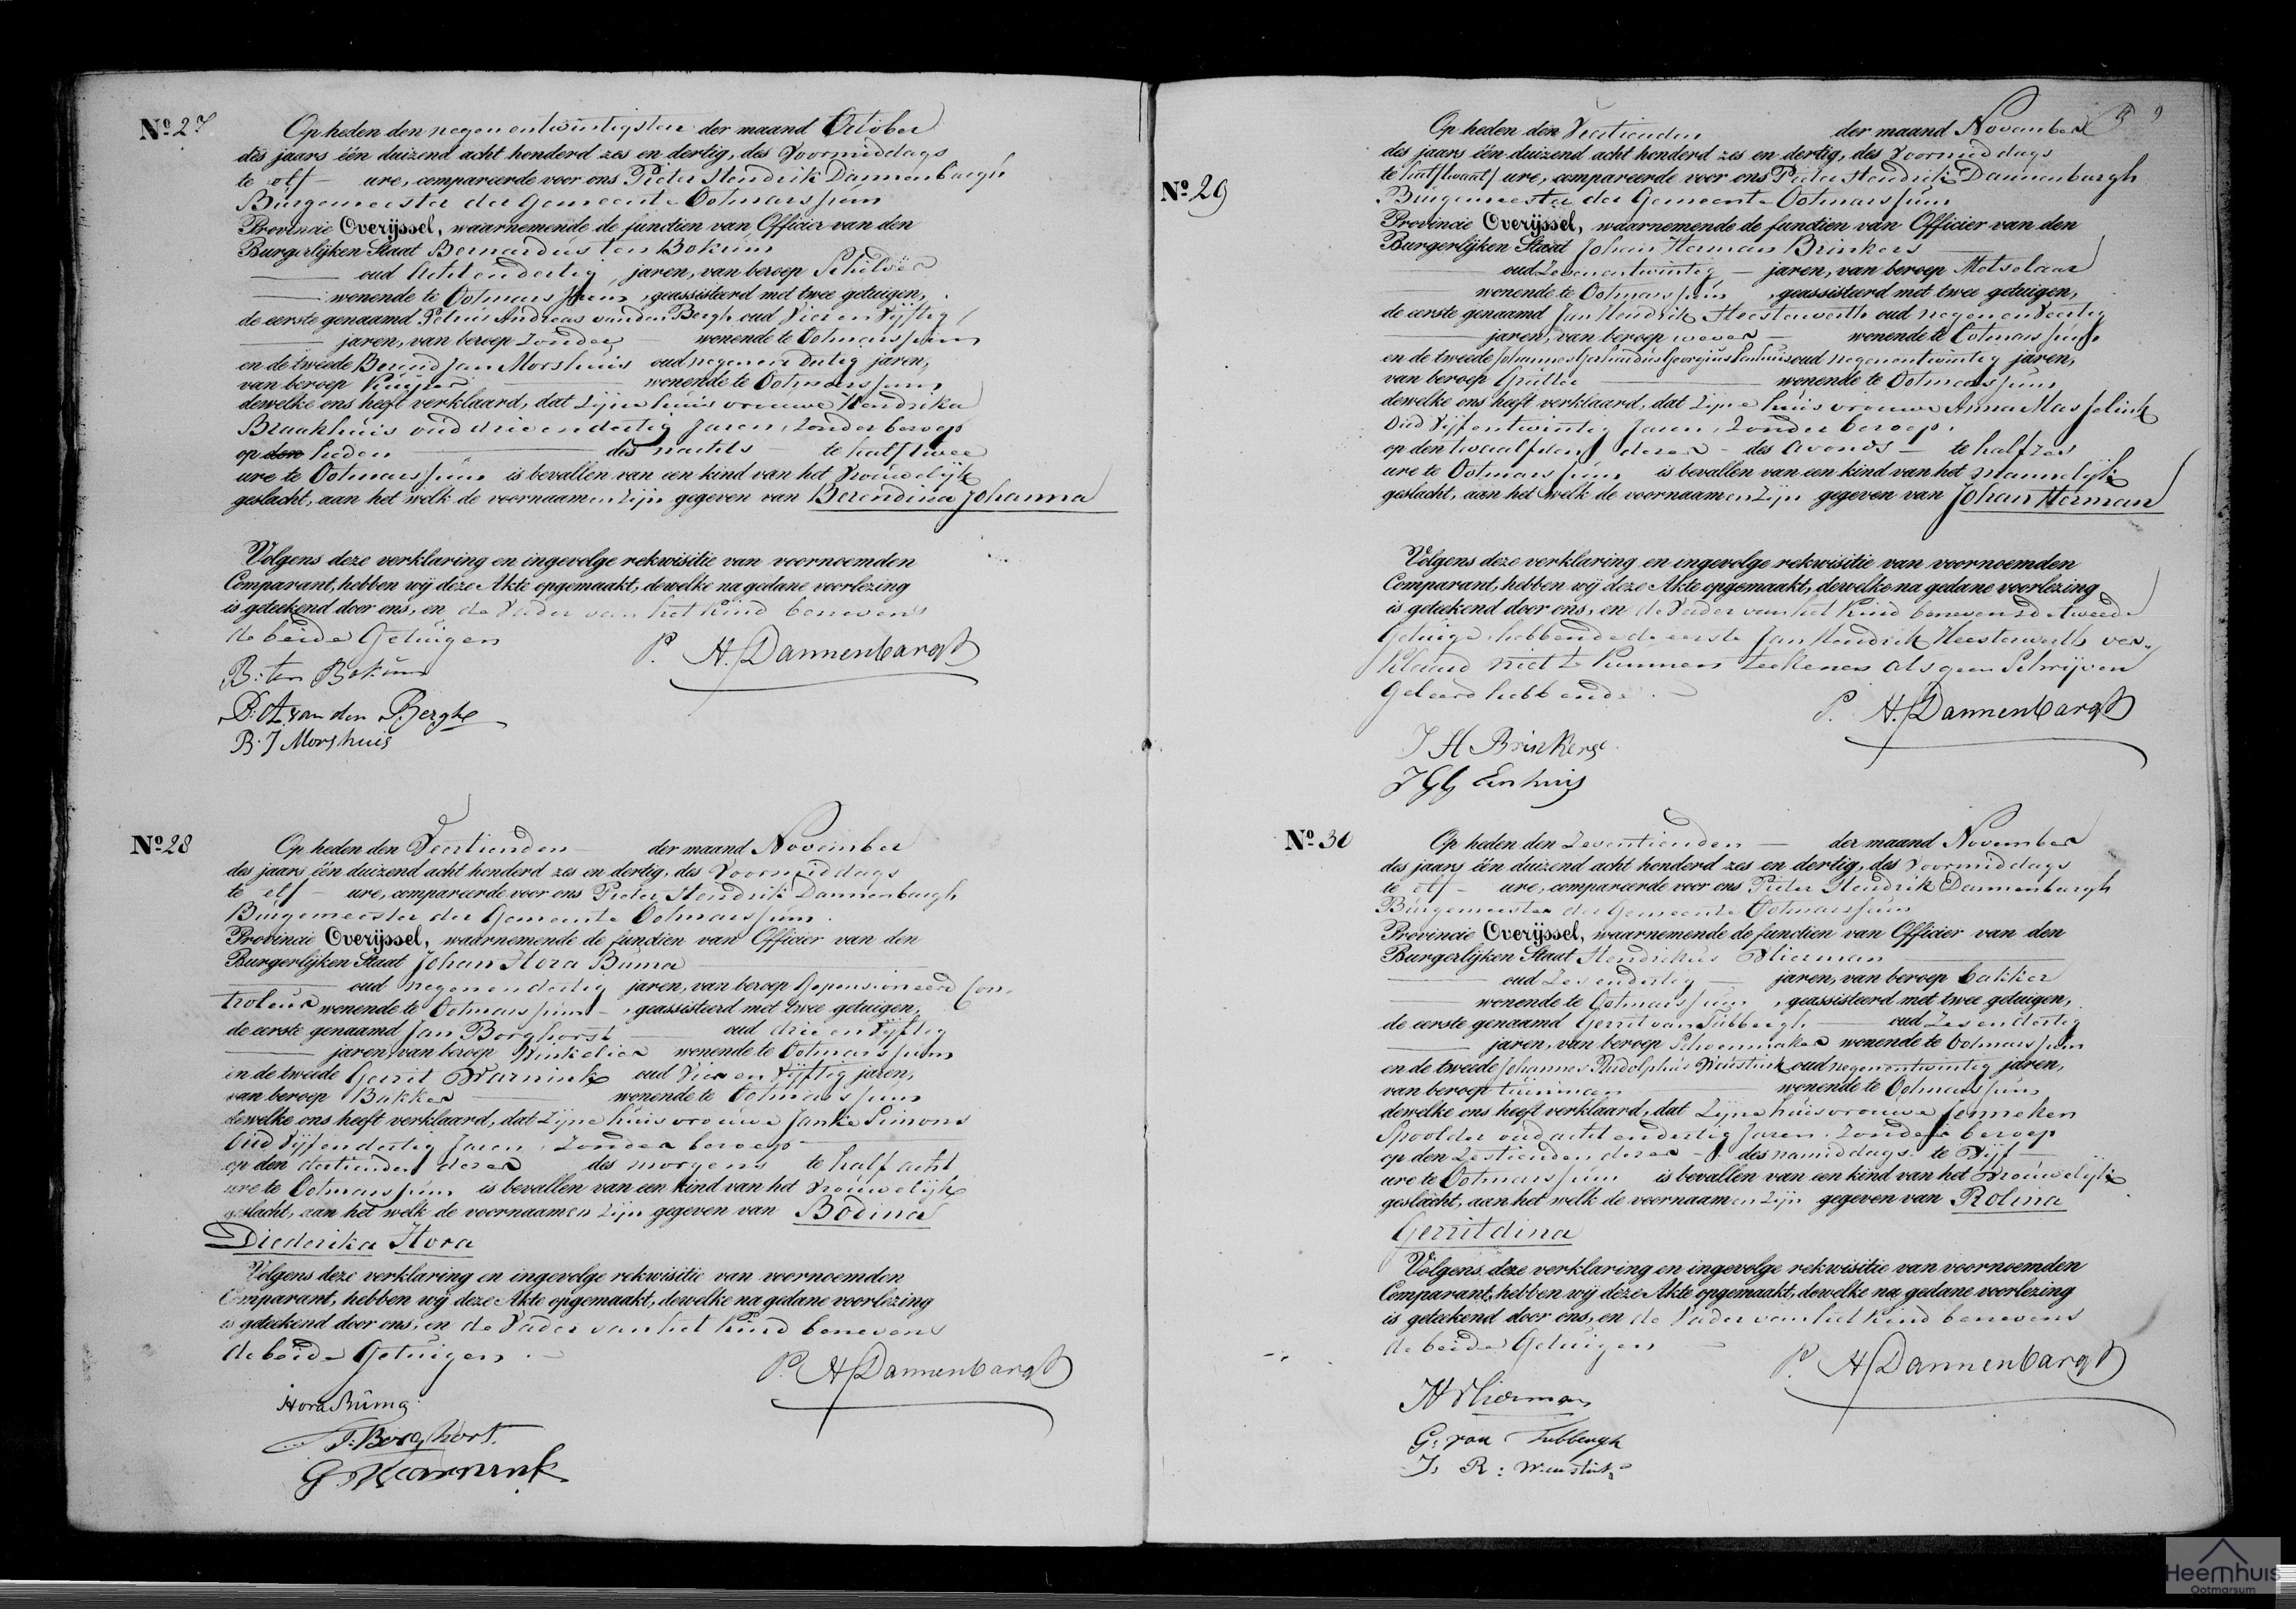 Nº 27
Op heden den negen entwintigsten der maand October
des jaars één duizend acht honderd zes en dertig, des Voormiddags
te elf ure, compareerde voor ons Pieter Hendrik Dannenbargh
Burgemeester der Gemeente Ootmarssum
Provincie Overijssel, waarnemende de functien van Officier van den
Burgerlijken Staat Bernardus ten Bokum
oud Acht endertig jaren, van beroep Schilder
wonende te Ootmarssum, geassisteerd met twee getuigen,
de eerste genaamd Petrus Andreas van den Bergh oud Vier en Vijftig
jaren, van beroep Zonder wonende te Ootmarssum
en de tweede Berend Jan Morshuis oud negenendertig jaren,
van beroep Kuiper wonende te Ootmarssum
dewelke ons heeft verklaard, dat Zijne huisvrouwe Hendrika
Braakhuis oud drie endertig Jaren, Zonder beroep
op den heden des nachts te half twee
ure te Ootmarssum is bevallen van een kind van het Vrouwelijk
geslacht, aan het welk de voornaamen Zijn gegeven van Berendina Johanna
Volgens deze verklaring en ingevolge rekwisitie van voornoemden
Comparant, hebben wij deze Akte opgemaakt, dewelke na gedane voorlezing
is geteekend door ons, en de Vader van het Kind benevens
de beide Getuigen
P. H. Dannenbargh
B: ten Bokum
P: A. van den Bergh
B. J Morshuis
Nº 28
Op heden den Veertienden der maand November
des jaars één duizend acht honderd zes en dertig, des Voormiddags
te elf ure, compareerde voor ons Pieter Hendrik Dannenbargh
Burgemeester der Gemeente Ootmarssum.
Provincie Overijssel, waarnemende de functien van Officier van den
Burgerlijken Staat Johan Hora Buma
oud negenendertig jaren, van beroep Gepensioneerd Con-
troleur wonende te Ootmarssum, geassisteerd met twee getuigen,
de eerste genaamd Jan Borghorst oud drie en Vijftig
jaren, van beroep Winkelier wonende te Ootmarssum
en de tweede Gerrit Warnink oud Vier en Vijftig jaren,
van beroep Bakker wonende te Ootmarssum
dewelke ons heeft verklaard, dat Zijne huisvrouwe Janke Simons
Oud Vijf endertig Jaren, Zonder beroep
op den dertienden dezer des morgens te half acht
ure te Ootmarssum is bevallen van een kind van het Vrouwelijk
geslacht, aan het welk de voornaamen Zijn gegeven van Bodina
Diederika Hora
Volgens deze verklaring en ingevolge rekwisitie van voornoemden
Comparant, hebben wij deze Akte opgemaakt, dewelke na gedane voorlezing
is geteekend door ons, en de Vader van het Kind benevens
de beide Getuigen.
P. H. Dannenbargh
Hora Buma
J: Borghorst.
G. Warnink
Nº 29
Op heden den Veertienden der maand November
des jaars één duizend acht honderd zes en dertig, des Voormiddags
te half twaalf ure, compareerde voor ons Pieter Hendrik Dannenbargh
Burgemeester der Gemeente Ootmarssum
Provincie Overijssel, waarnemende de functien van Officier van den
Burgerlijken Staat Johan Herman Brinkers
oud Zevenentwintig jaren, van beroep Metselaar
wonende te Ootmarssum, geassisteerd met twee getuigen,
de eerste genaamd Jan Hendrik Heesterwerth oud negen en Veertig
jaren, van beroep wever wonende te Ootmarssum
en de tweede Johannes Gerhardus Georgius Eenhuis oud negenentwintig jaren,
van beroep wonende te Ootmarssum
dewelke ons heeft verklaard, dat Zijne huisvrouwe Anna
Oud Vijf entwintig Jaren, Zonder beroep.
op den twaalfden dezer des avonds te half zes
ure te Ootmarssum is bevallen van een kind van het Mannelijk
geslacht, aan het welk de voornaamen Zijn gegeven van Johan Herman
Volgens deze verklaring en ingevolge rekwisitie van voornoemden
Comparant, hebben wij deze Akte opgemaakt, dewelke na gedane voorlezing
is geteekend door ons, en de Vader van het Kind benevens de tweede
Getuige, hebbende de eerste Jan Hendrik Heesterwerth ver-
klaard niet te kunnen teekenen als geen Schrijven
Geleerd hebbende.
P. H. Dannenbargh
J H Brinkers
J G G Eenhuis
Nº 30
Op heden den Zeventienden der maand November
des jaars één duizend acht honderd zes en dertig, des Voormiddags
te elf ure, compareerde voor ons Pieter Hendrik Dannenbargh
Burgemeester der Gemeente Ootmarssum
Provincie Overijssel, waarnemende de functien van Officier van den
Burgerlijken Staat Hendrikus Vlierman
oud Zesendertig jaren, van beroep bakker
wonende te Ootmarssum, geassisteerd met twee getuigen,
de eerste genaamd Gerrit van Tubbergh oud Zes en dertig
jaren, van beroep Schoenmaker wonende te Ootmarssum
en de tweede Johannes Rudolphus Weustink oud negenentwintig jaren,
van beroep tuinman wonende te Ootmarssum
dewelke ons heeft verklaard, dat Zijne huisvrouwe Jenneken
Spoolder oud acht endertig Jaren. Zonder beroep
op den Zestienden dezer des namiddags te Vijf
ure te Ootmarssum is bevallen van een kind van het Vrouwelijk
geslacht, aan het welk de voornaamen Zijn gegeven van Rolina
Gerritdina
Volgens deze verklaring en ingevolge rekwisitie van voornoemden
Comparant, hebben wij deze Akte opgemaakt, dewelke na gedane voorlezing
is geteekend door ons, en de Vader van het Kind benevens
de beide Getuigen
P. H. Dannenbargh
H Vlierman
G: van Tubbergh
J. R: Weustink
Heemhuis
Ootmarsum